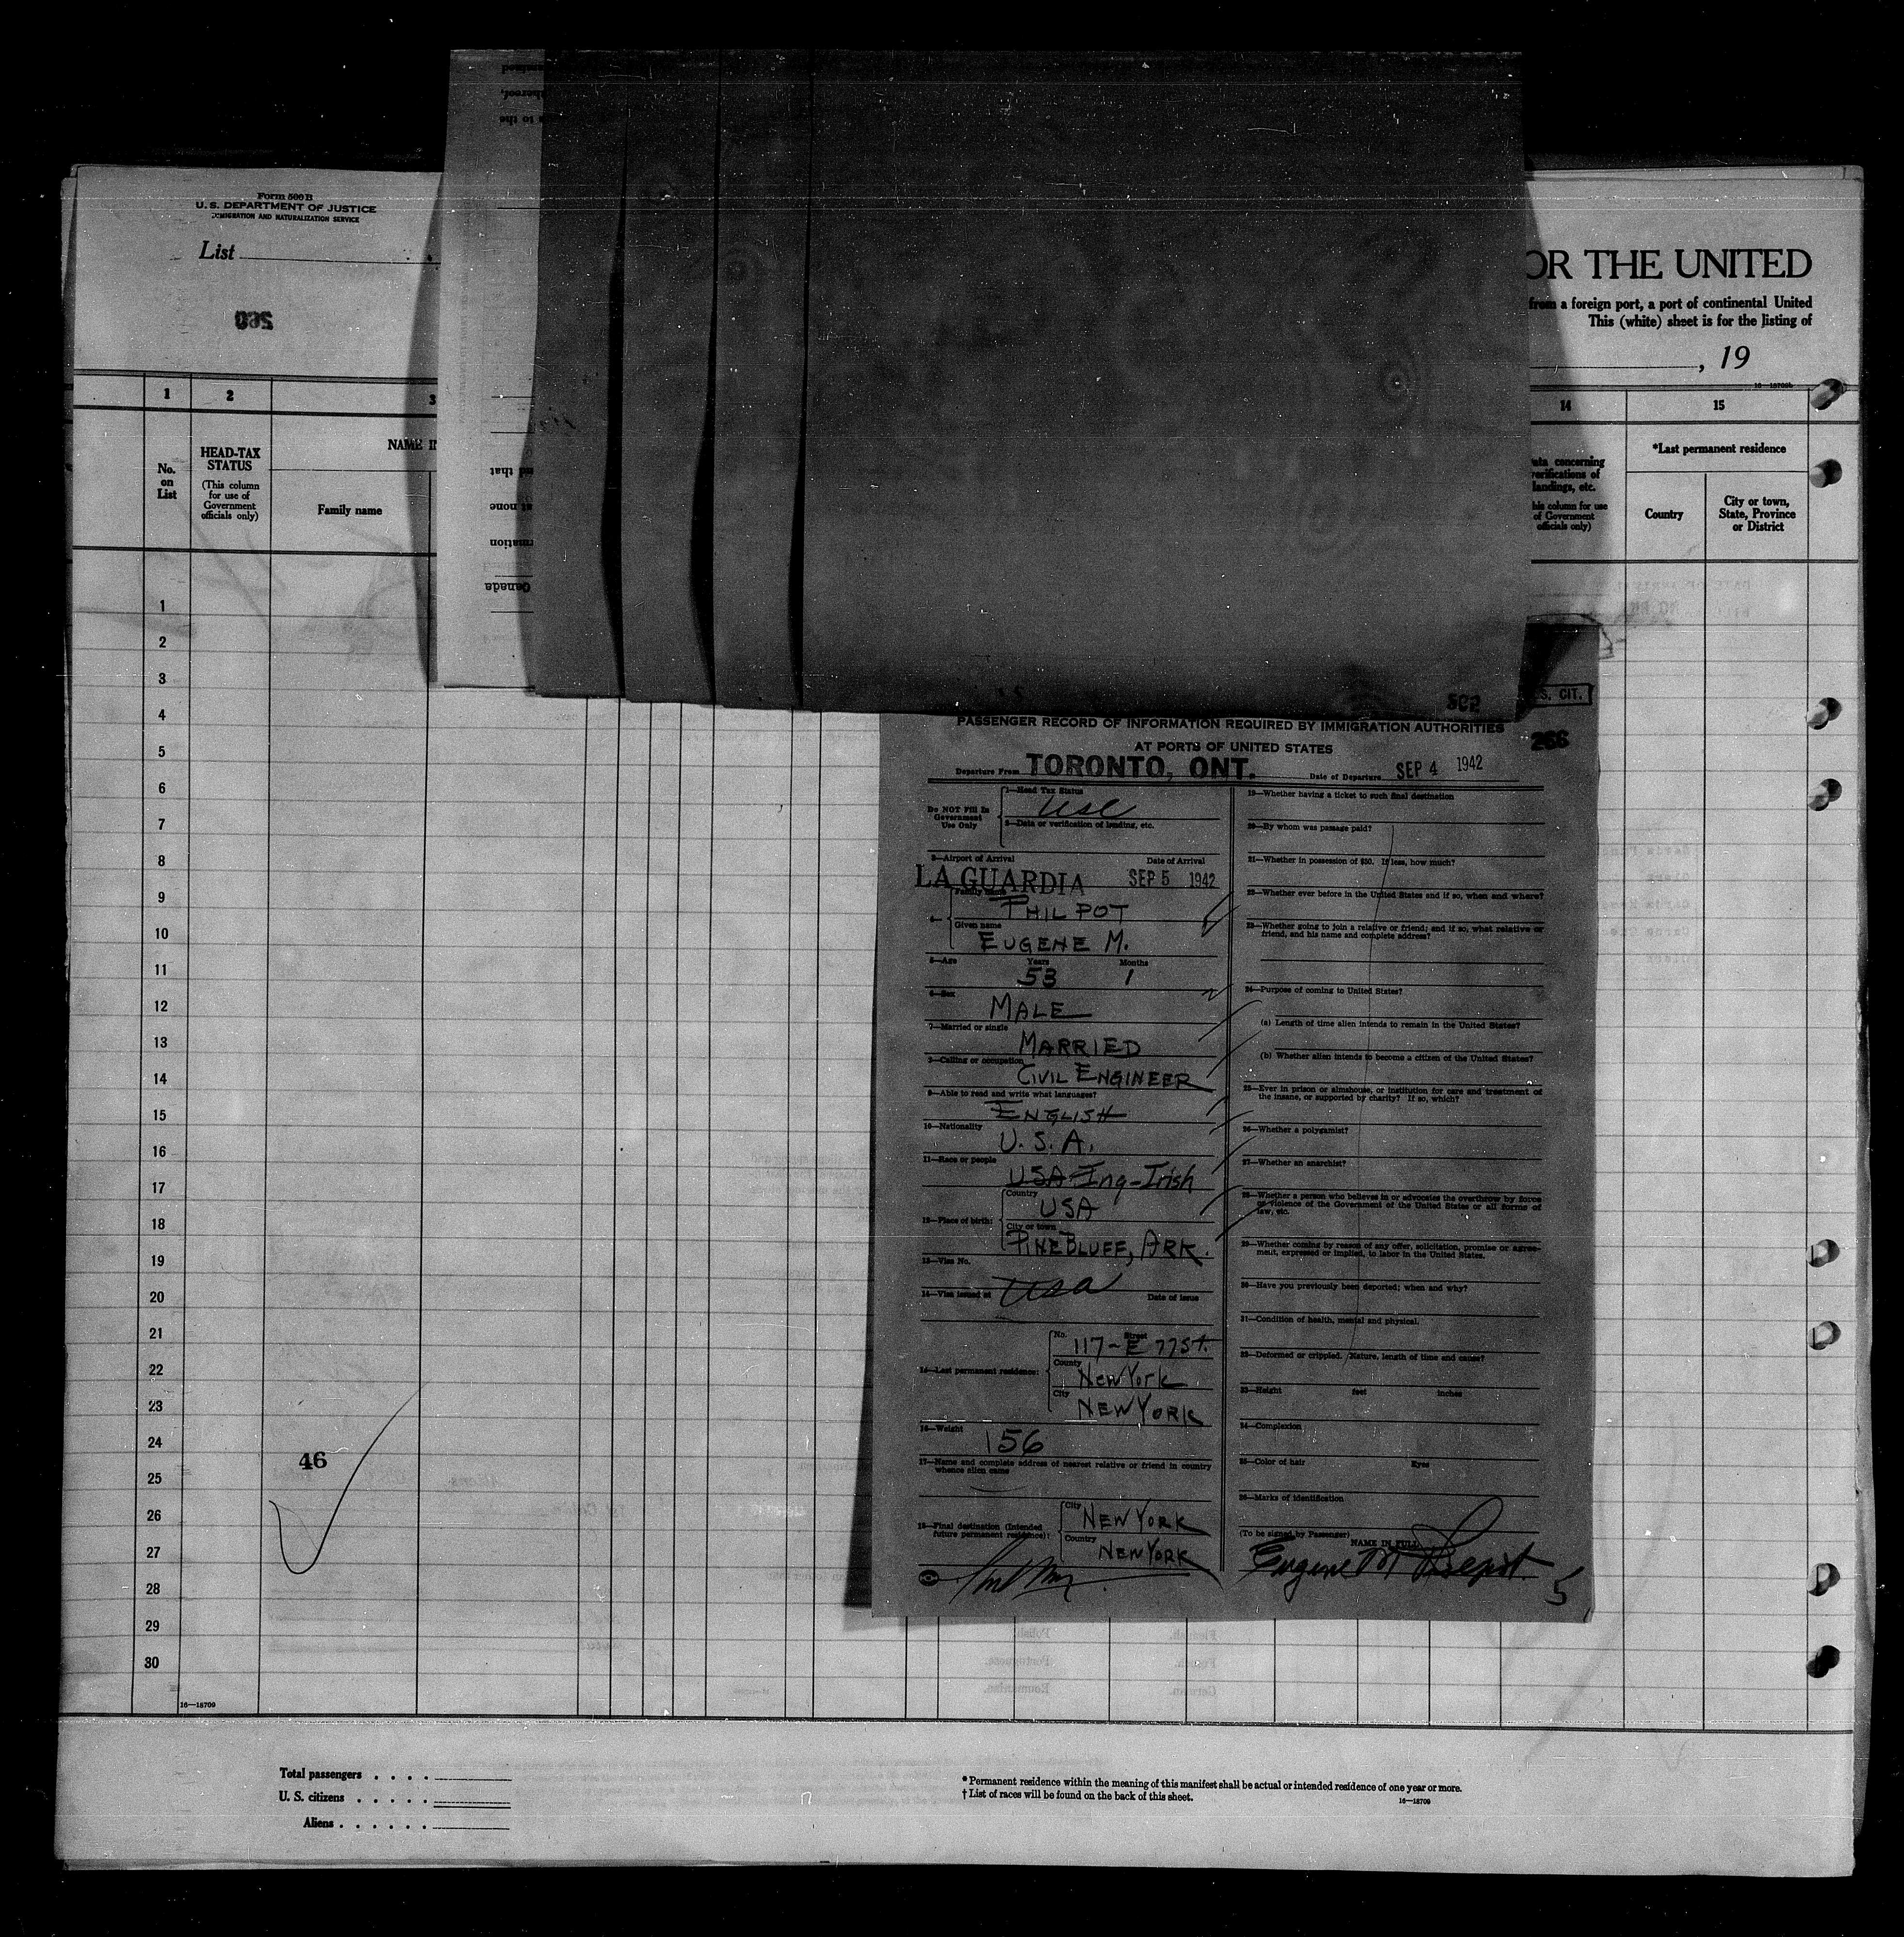 Form 500 B
U. S. DEPARTMENT OF JUSTICE
IMMIGRATION AND NATURALIZATION SERVICE
List
560
OR THE UNITED
from a foreign port, a port of continental United
This (white) sheet is for the listing of
, 19
1 2 3 14 15
No. on List
HEAD-TAX STATUS
(This column for use of Government officials only)
NAME IN
Family name
ata concerning
verifications of
landings, etc.
his column for use
of Government
officials only)
*Last permanent residence
Country
City or town, State, Province or District
thereof,
s to the
nd that
at none
rmation
Canada
1
2
3
4
5
6
7
8
9
10
11
12
13
14
15
16
17
18
19
20
21
22
23
24
25
26
27
28
29
30
46
16—18709
S. CIT.
266
PASSENGER RECORD OF INFORMATION REQUIRED BY IMMIGRATION AUTHORITIES
AT PORTS OF UNITED STATES
Departure From TORONTO, ONT. Date of Departure SEP 4 1942
Do NOT Fill In
Government
Use Only
1—Head Tax Status
USC
2—Data or verification of landing, etc.
3—Airport of Arrival Date of Arrival
LA GUARDIA SEP 5 1942
Family name
PHILPOT
4—
Given name
EUGENE M.
5—Age Years Months
53 1
6—Sex
MALE
7—Married or single
MARRIED
8—Calling or occupation
CIVIL ENGINEER
9—Able to read and write what languages?
ENGLISH
10—Nationality
U. S. A.
11—Race or people
USA Eng-Irish
12—Place of birth:
Country
USA
City or town
PINE BLUFF, ARK.
13—Visa No.
14—Visa issued at USA Date of issue
15—Last permanent residence:
No. Street
117-E 77 St.
County
New York
City
NEW YORK
16—Weight
156
17—Name and complete address of nearest relative or friend in country
whence alien came
18—Final destination (Intended
future permanent residence):
City
NEW YORK
Country
NEW YORK
19—Whether having a ticket to such final destination
20—By whom was passage paid?
21—Whether in possession of $50. If less, how much?
22—Whether ever before in the United States and if so, when and where?
23—Whether going to join a relative or friend; and if so, what relative or
friend, and his name and complete address?
24—Purpose of coming to United States?
(a) Length of time alien intends to remain in the United States?
(b) Whether alien intends to become a citizen of the United States?
25—Ever in prison or almshouse, or institution for care and treatment of
the insane, or supported by charity? If so, which?
26—Whether a polygamist?
27—Whether an anarchist?
28—Whether a person who believes in or advocates the overthrow by force
or violence of the Government of the United States or all forms of
law, etc.
29—Whether coming by reason of any offer, solicitation, promise or agree-
ment, expressed or implied, to labor in the United States.
30—Have you previously been deported; when and why?
31—Condition of health, mental and physical.
32—Deformed or crippled. Nature, length of time and cause?
33—Height feet inches
34—Complexion
35—Color of hair Eyes
36—Marks of identification
(To be signed by Passenger)
NAME IN FULL
Eugene M Philpot.
5
Total passengers . . . .
U. S. citizens . . . . .
Aliens . . . . . .
* Permanent residence within the meaning of this manifest shall be actual or intended residence of one year or more.
† List of races will be found on the back of this sheet.
16—18709